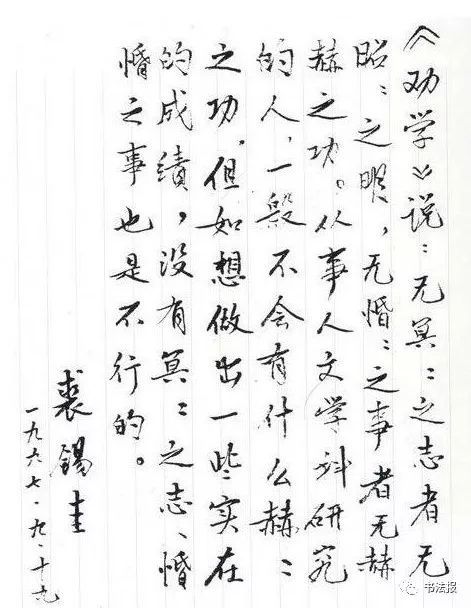 《劝学》说：无冥〻之志者无
昭〻之明，无惛〻之事者无赫
赫之功。从事人文学科研究
的人，一般不会有什么赫〻
之功，但如想做出一些实在
的成绩，没有冥〻之志、惛
惛之事也是不行的。
裘锡圭
一九九七·九·十九
书法报